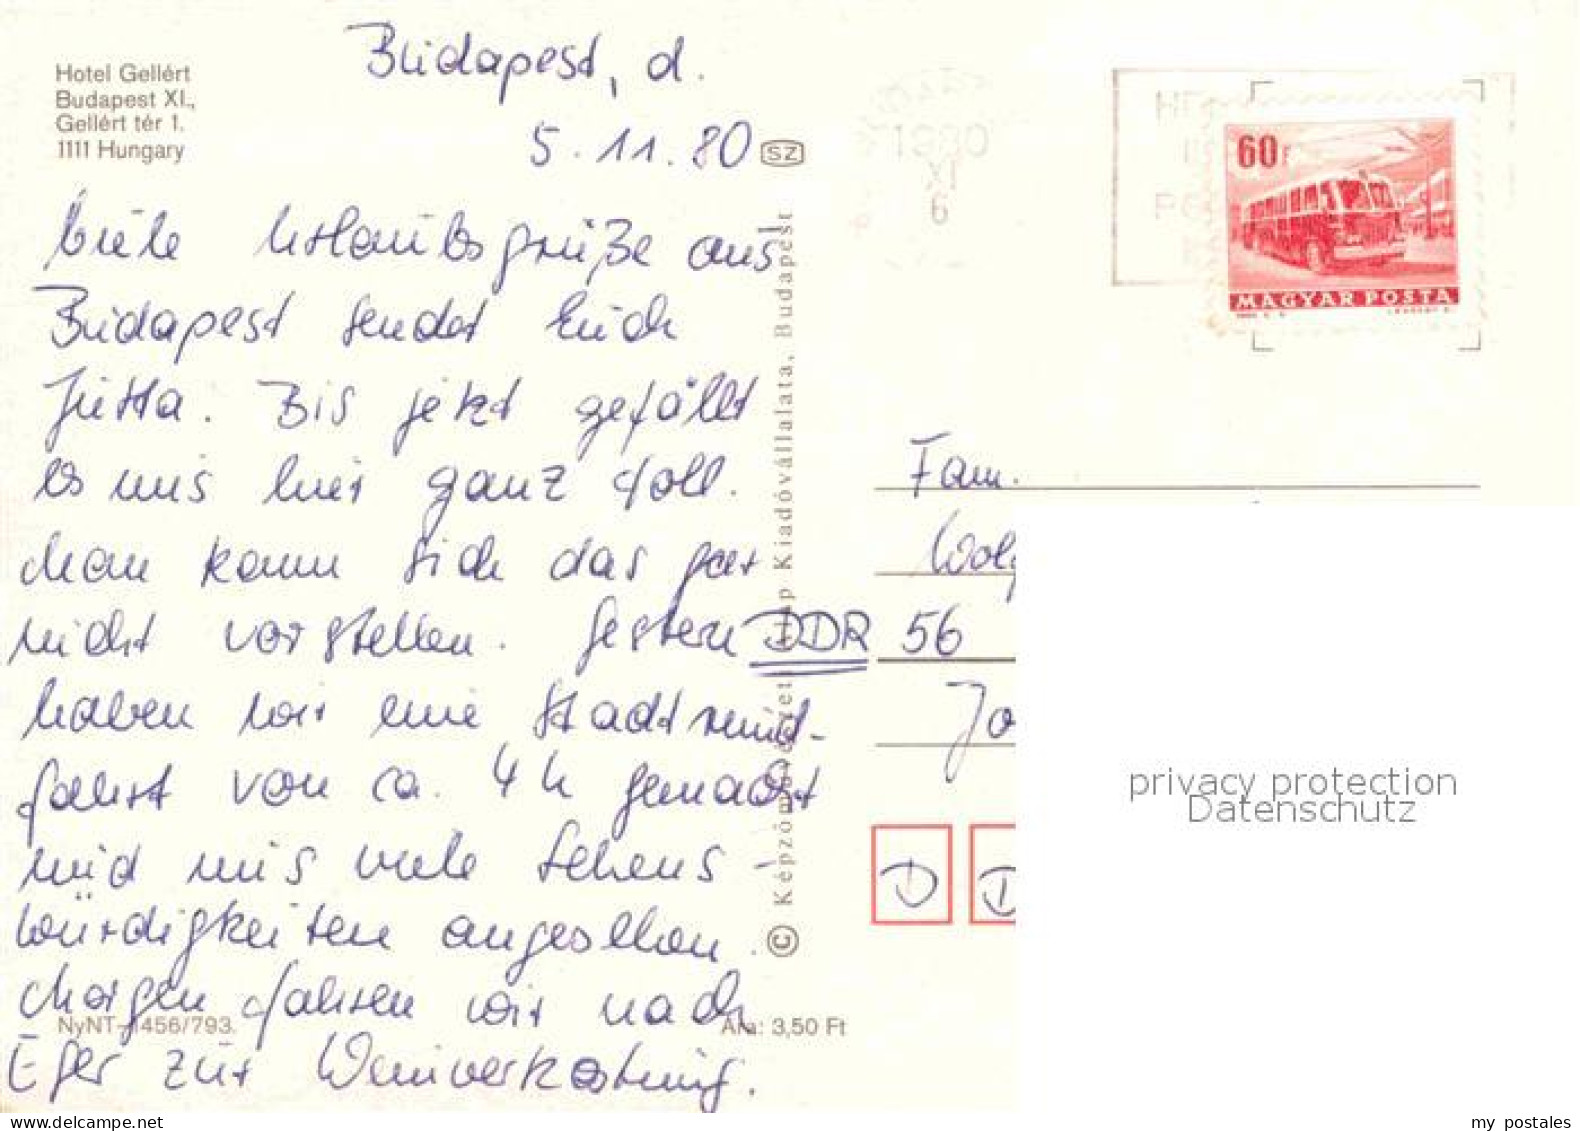 Hotel Gellért
Budapest XI.,
Gellért tér 1.
1111 Hungary
Budapest, d.
5.11.80
SZ
Viele Urlaubsgrüße aus
Budapest sendet Euch
Jutta. Bis jetzt gefällt
es uns hier ganz toll.
Man kann sich das gar
nicht vorstellen. Gestern
haben wir eine Stadtrund-
fahrt von ca. 4 h gemacht
und uns viele Sehens-
würdigkeiten angesehen.
Morgen fahren wir nach
Eger zur Weinverkostung.
NyNT-1456/793.
Ára: 3,50 Ft
© Képzőművészeti Alap Kiadóvállalata, Budapest
1980
XI
6
60f
MAGYAR POSTA
Fam.
Wolf
DDR 56
Jo
D D
privacy protection
Datenschutz
my postales